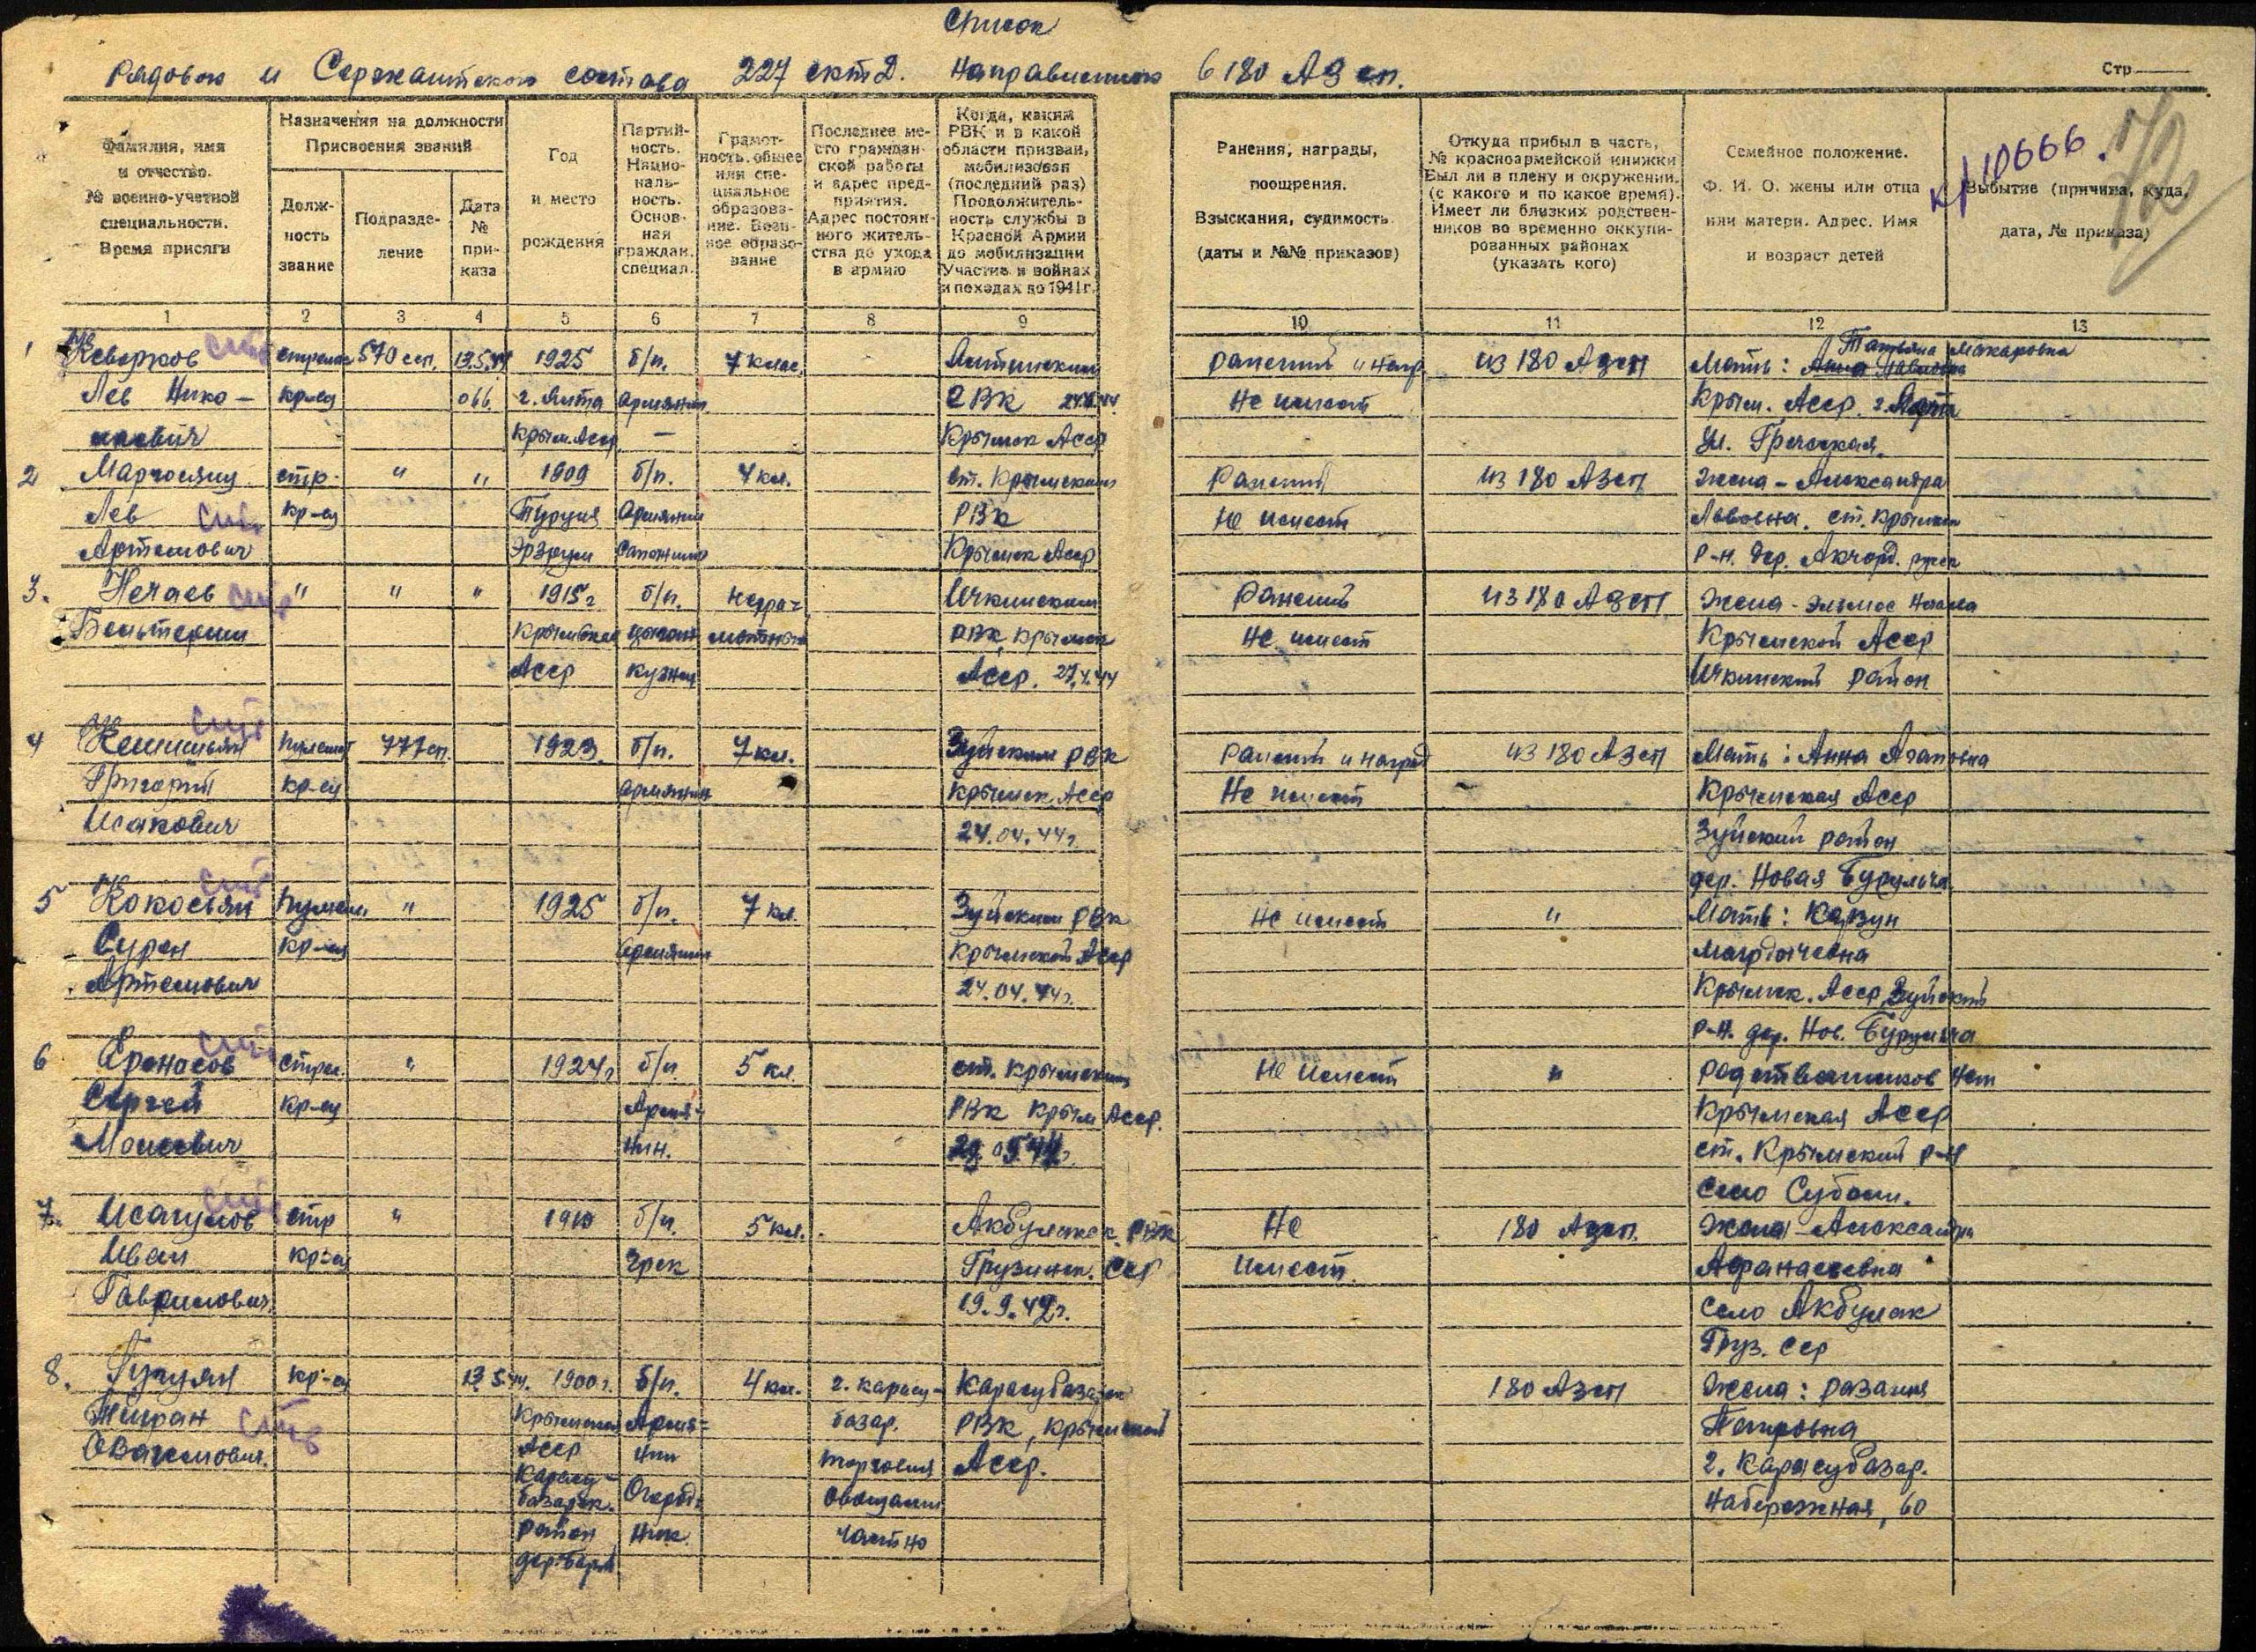 Список
рядового и Сержантского состава 227 скт д. направленного в 180 АЗсп.
Стр
Фамилия, имя
и отчество.
№ военно-учетной
специальности.
Время присяги
Назначения на должности
Присвоения званий
Долж-
ность
звание
Подразде-
ление
Дата
№
при-
каза
Год
и место
рождения
Партий-
ность.
Нацио-
наль-
ность.
Основ-
ная
граждан.
специал.
Грамот-
ность, общее
или спе-
циальное
образова-
ние. Воен-
ное образо-
вание
Последнее ме-
сто граждан-
ской работы
и адрес пред-
приятия.
Адрес постоян-
ного житель-
ства до ухода
в армию
Когда, каким
РВК и в какой
области призван,
мобилизован
(последний раз)
Продолжитель-
ность службы в
Красной Армии
до мобилизации
Участие в войнах
и походах до 1941 г.
Ранения, награды,
поощрения.
Взыскания, судимость
(даты и №№ приказов)
Откуда прибыл в часть,
№ красноармейской книжки
Был ли в плену и окружении.
(с какого и по какое время).
Имеет ли близких родствен-
ников во временно оккупи-
рованных районах
(указать кого)
Семейное положение.
Ф. И. О. жены или отца
или матери. Адрес. Имя
и возраст детей
Выбытие (причина, куда,
дата, № приказа)
10666.
1 2 3 4 5 6 7 8 9 10 11 12 13
1 Кеворков 570 сп. 13.5.44 1925 б/п. 7 клас. Ялтинским ранений и нагр. из 180 Азсп Мать: Татьяна Макаровна
Лев Нико- кр-ец 066 г. Ялта армянин РВК Не имеет Крым. Асср. г. Ялта
лаевич Крым. Асср — Крымск Асср ул. Греческая.
2 стр. " " 1909 б/п. 4 кл. ст. Крымским Ранений из 180 АЗсп Жена - Александра
Лев кр-ец Турция Армянин РВК Не имеет Львовна. ст. Крымск
Артемович Эрзрум Сапожник Крымск Асср р-н. дер.
3. Нечаев " " " 1915 г б/п. негра- Ичкинским Ранений из 180 Азсп Жена -
Крымская мотный РВК, Крымск Не имеет Крымской Асср
Асср кузнец Асср. 27.4.44 Ичкинский район
4 пулемет 777 сп. 1923. б/п. 7 кл. Зуйским РВК Ранений и наград из 180 АЗсп Мать: Анна Агаповна
Григорий кр-ец армянин Крымск. Асср Не имеет Крымская Асср
Исакович 24.04.44 г. Зуйский район
дер. Новая Бурульча
5 Кокосьян пулем. " 1925 б/п. 7 кл. Зуйским РВК Не имеет " Мать:
Сурен кр-ец Армянин Крымской Асср Магрдычевна
Артемович 24.04.44 г. Крымск. Асср, Зуйский
р-н. дер. Нов. Бурульча
6 стрел. " 1924 г б/п. 5 кл. ст. Крымским Не имеет " родственников нет
Сергей кр-ец Армя- РВК Крым Асср. Крымская Асср
нин. ст. Крымский р-н
село
7. Исагулов стр " 1910 б/п. 5 кл. Акбулакск. РВК Не 180 Азсп. Жена - Александра
Иван кр-ец Грек Грузинск. ССР имеет Афанасьевна
Гаврилович. 19.9.42 г. село Акбулак
Груз. сср
8. кр-ец 13.5.44. 1900 г. б/п. 4 кл. г. Карасу- Карасубазарск 180 АЗсп Жена:
Тигран Крымская Армя- базар. РВК, Крымской Петровна
Асср нин торговля Асср. г. Карасубазар.
Карасу- Огород- овощами Набережная, 60
базарск. ник. частно
район